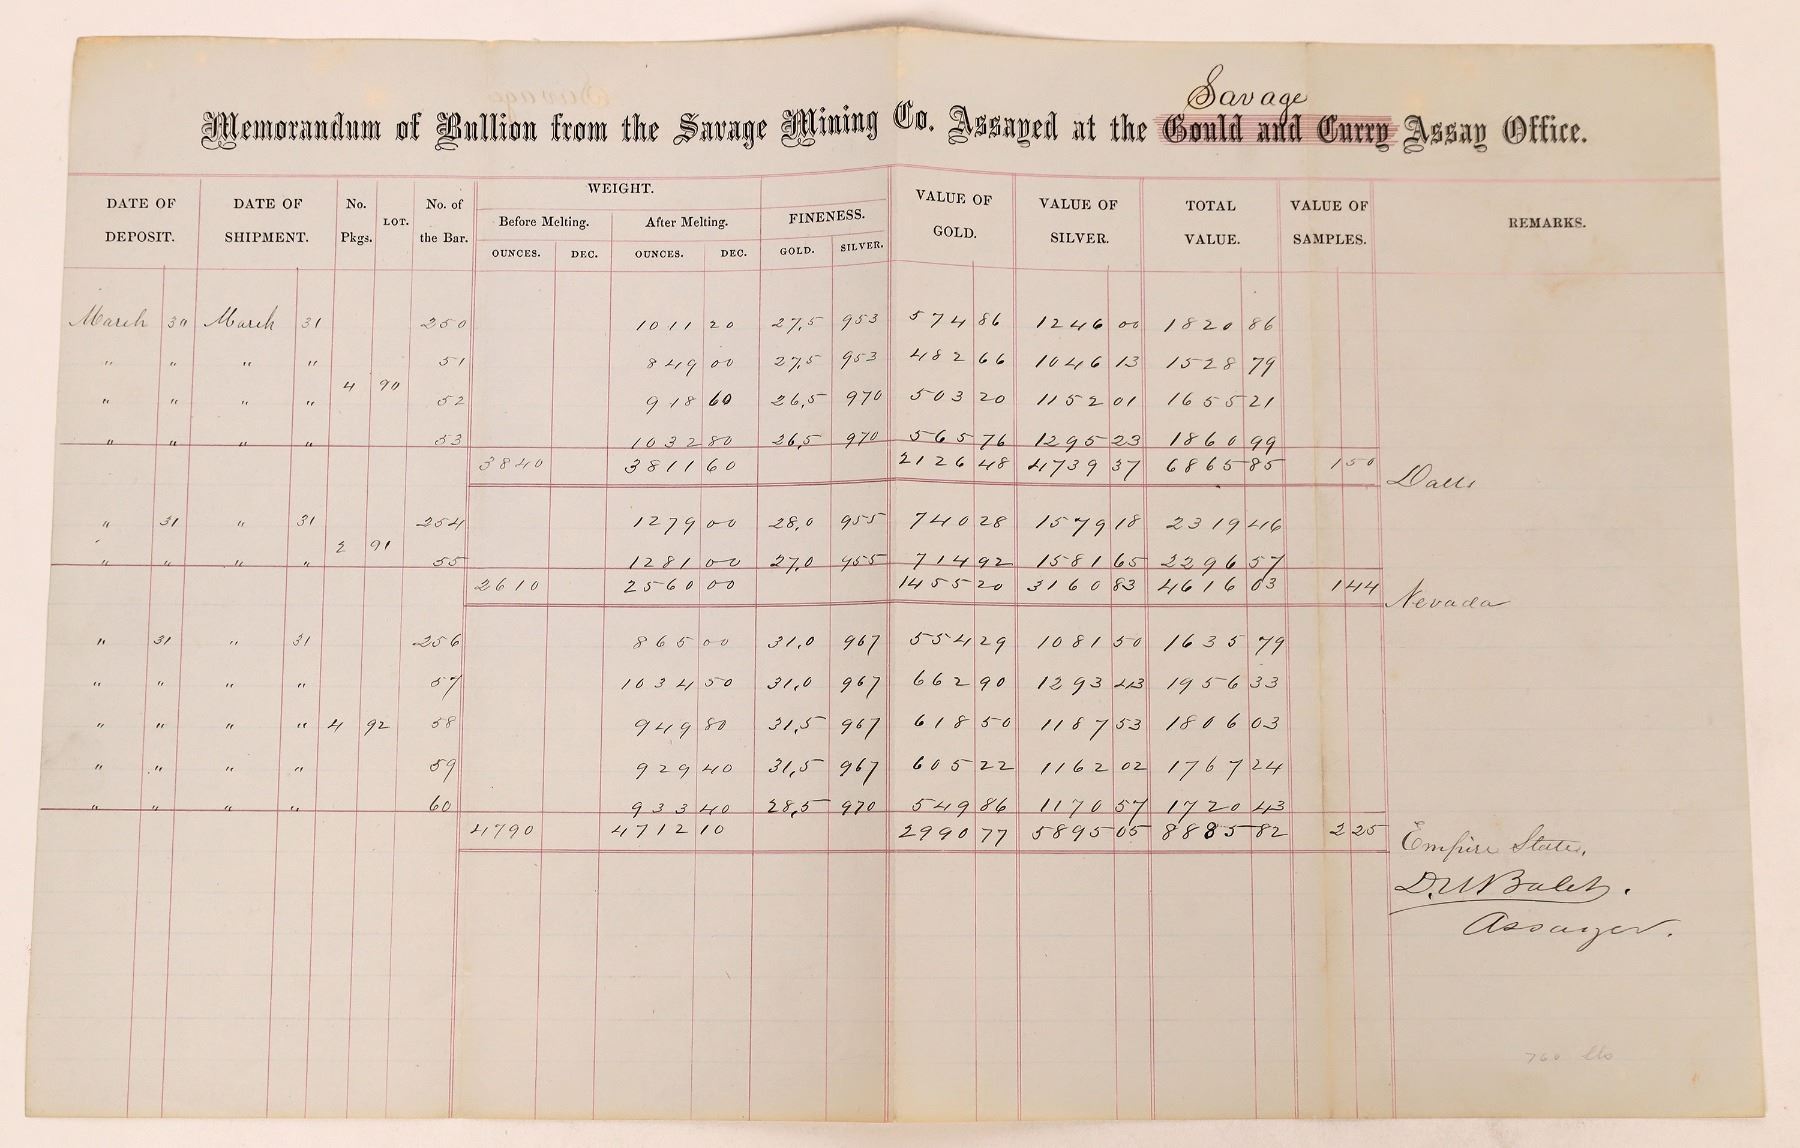 Savage
Memorandum of Bullion from the Savage Mining Co. Assayed at the Gould and Curry Assay Office.
DATE OF DEPOSIT. DATE OF SHIPMENT. No. Pkgs. LOT. No. of the Bar. WEIGHT. Before Melting. OUNCES. DEC. After Melting. OUNCES. DEC. FINENESS. GOLD. SILVER. VALUE OF GOLD. VALUE OF SILVER. TOTAL VALUE. VALUE OF SAMPLES. REMARKS.
March 30 March 31 250 1011 20 27,5 953 574 86 1246 00 1820 86
" " " " 51 849 00 27,5 953 482 66 1046 13 1528 79
4 90
" " " " 52 918 60 26,5 970 503 20 1152 01 1655 21
" " " " 53 1032 80 26,5 970 565 76 1295 23 1860 99
3840 3811 60 2126 48 4739 37 6865 85 1 50
" 31 " 31 254 1279 00 28,0 955 740 28 1579 18 2319 46
2 91
" " " " 55 1281 00 27,0 955 714 92 1581 65 2296 57
2610 2560 00 1455 20 3160 83 4616 03 1 44 Nevada
" 31 " 31 256 865 00 31,0 967 554 29 1081 50 1635 79
" " " " 57 1034 50 31,0 967 662 90 1293 43 1956 33
" " " " 4 92 58 949 80 31,5 967 618 50 1187 53 1806 03
" " " " 59 929 40 31,5 967 605 22 1162 02 1767 24
" " " " 60 933 40 28,5 970 549 86 1170 57 1720 43
4790 4712 10 2990 77 5895 05 8885 82 2 25 Empire State,
Assayer.